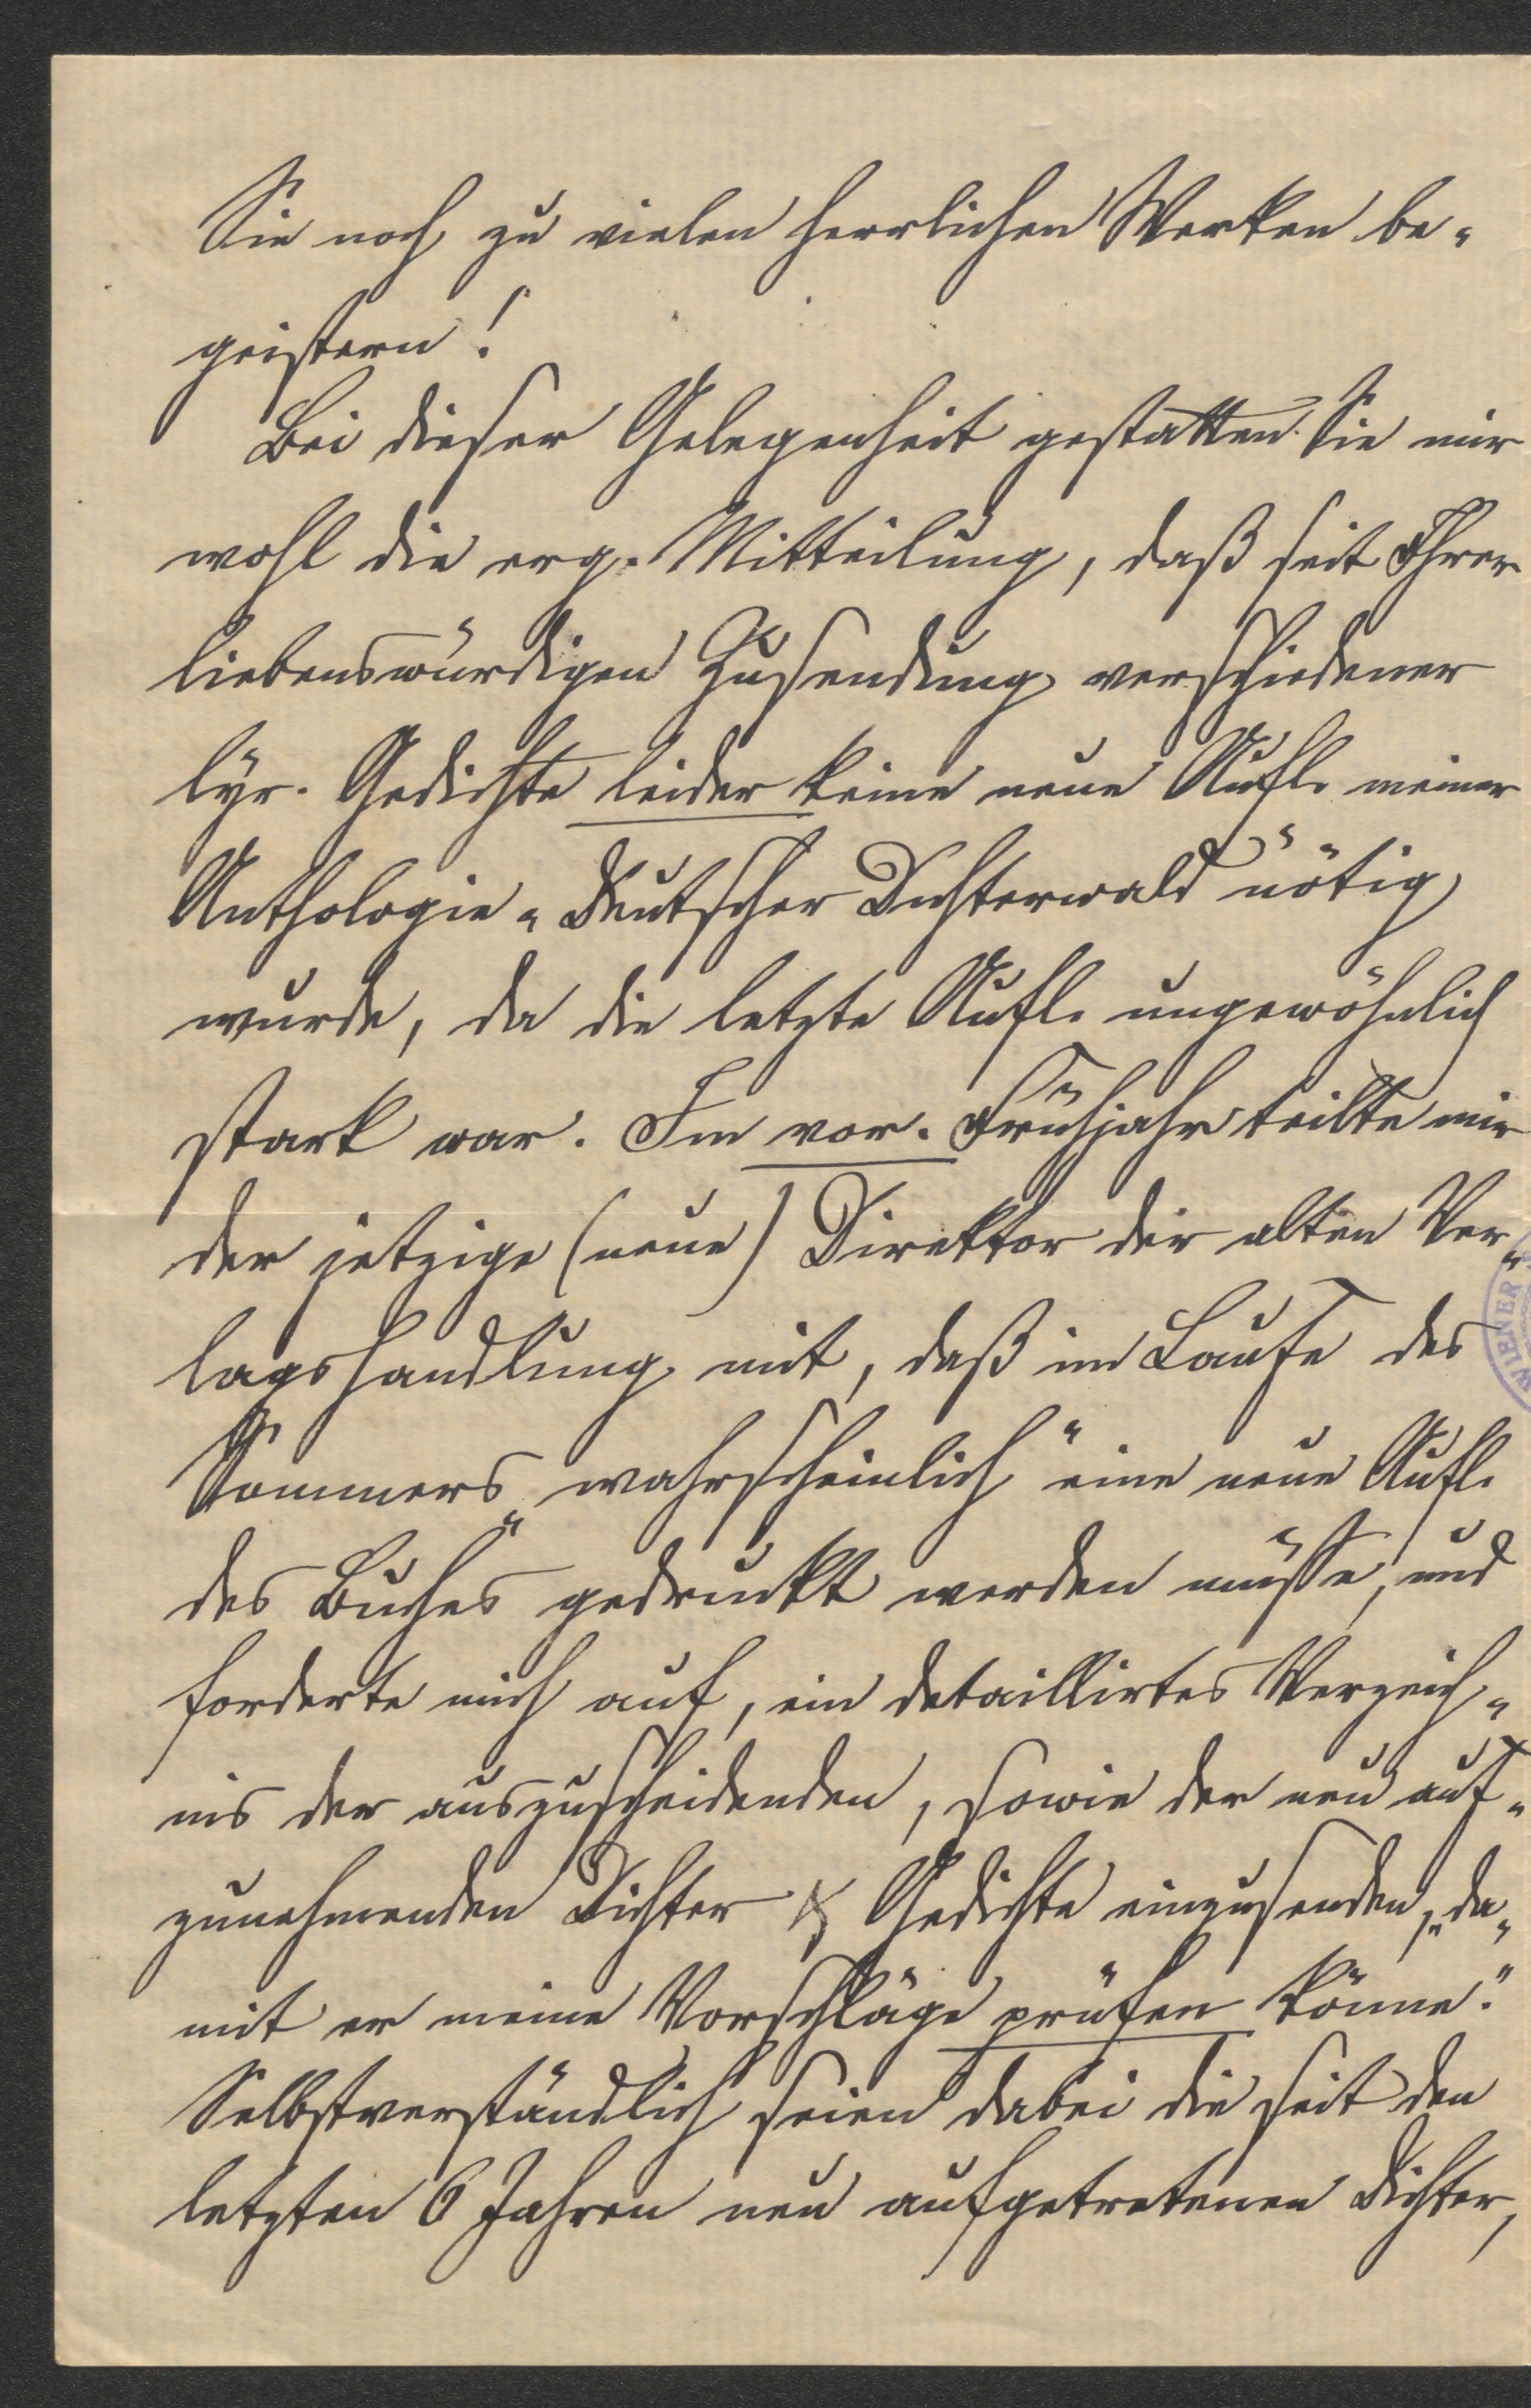 Sie noch zu vielen herrlichen Werken be-
geistern!
Bei dieser Gelegenheit gestatten Sie mir
wohl die erg. Mitteilung, daß seit Ihrer
liebenswürdigen Zusendung verschiedener
lyr. Gedichte leider keine neue Aufl. meiner
Anthologie „Deutscher Dichterwald" nötig
wurde, da die letzte Aufl. ungewöhnlich
stark war. Im vor. Frühjahr teilte mir
der jetzige (neue) Direktor der alten Ver-
lagshandlung mit, daß im Laufe des
Sommers „wahrscheinlich" eine neue Aufl.
des Buches gedruckt werden müsse, und
forderte mich auf, ein detaillirtes Verzeich-
nis der auszuscheidenden, sowie der neu auf-
zunehmenden Dichter & Gedichte einzusenden, „da-
mit er meine Vorschläge prüfen könne."
Selbstverständlich seien dabei die seit den
letzten 6 Jahren neu aufgetretenen Dichter,
WIENER